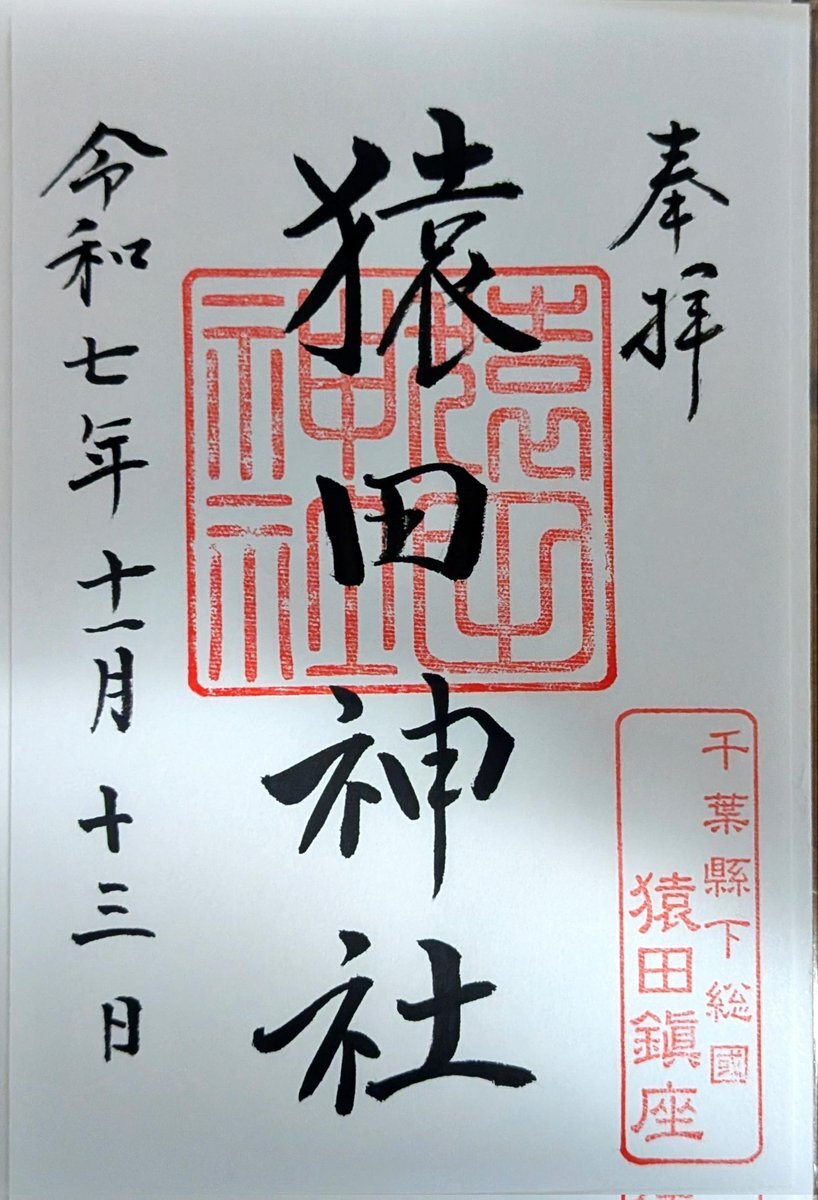 奉拝
猿田神社
猿田神社
令和七年十一月十三日
千葉縣下総國
猿田鎮座